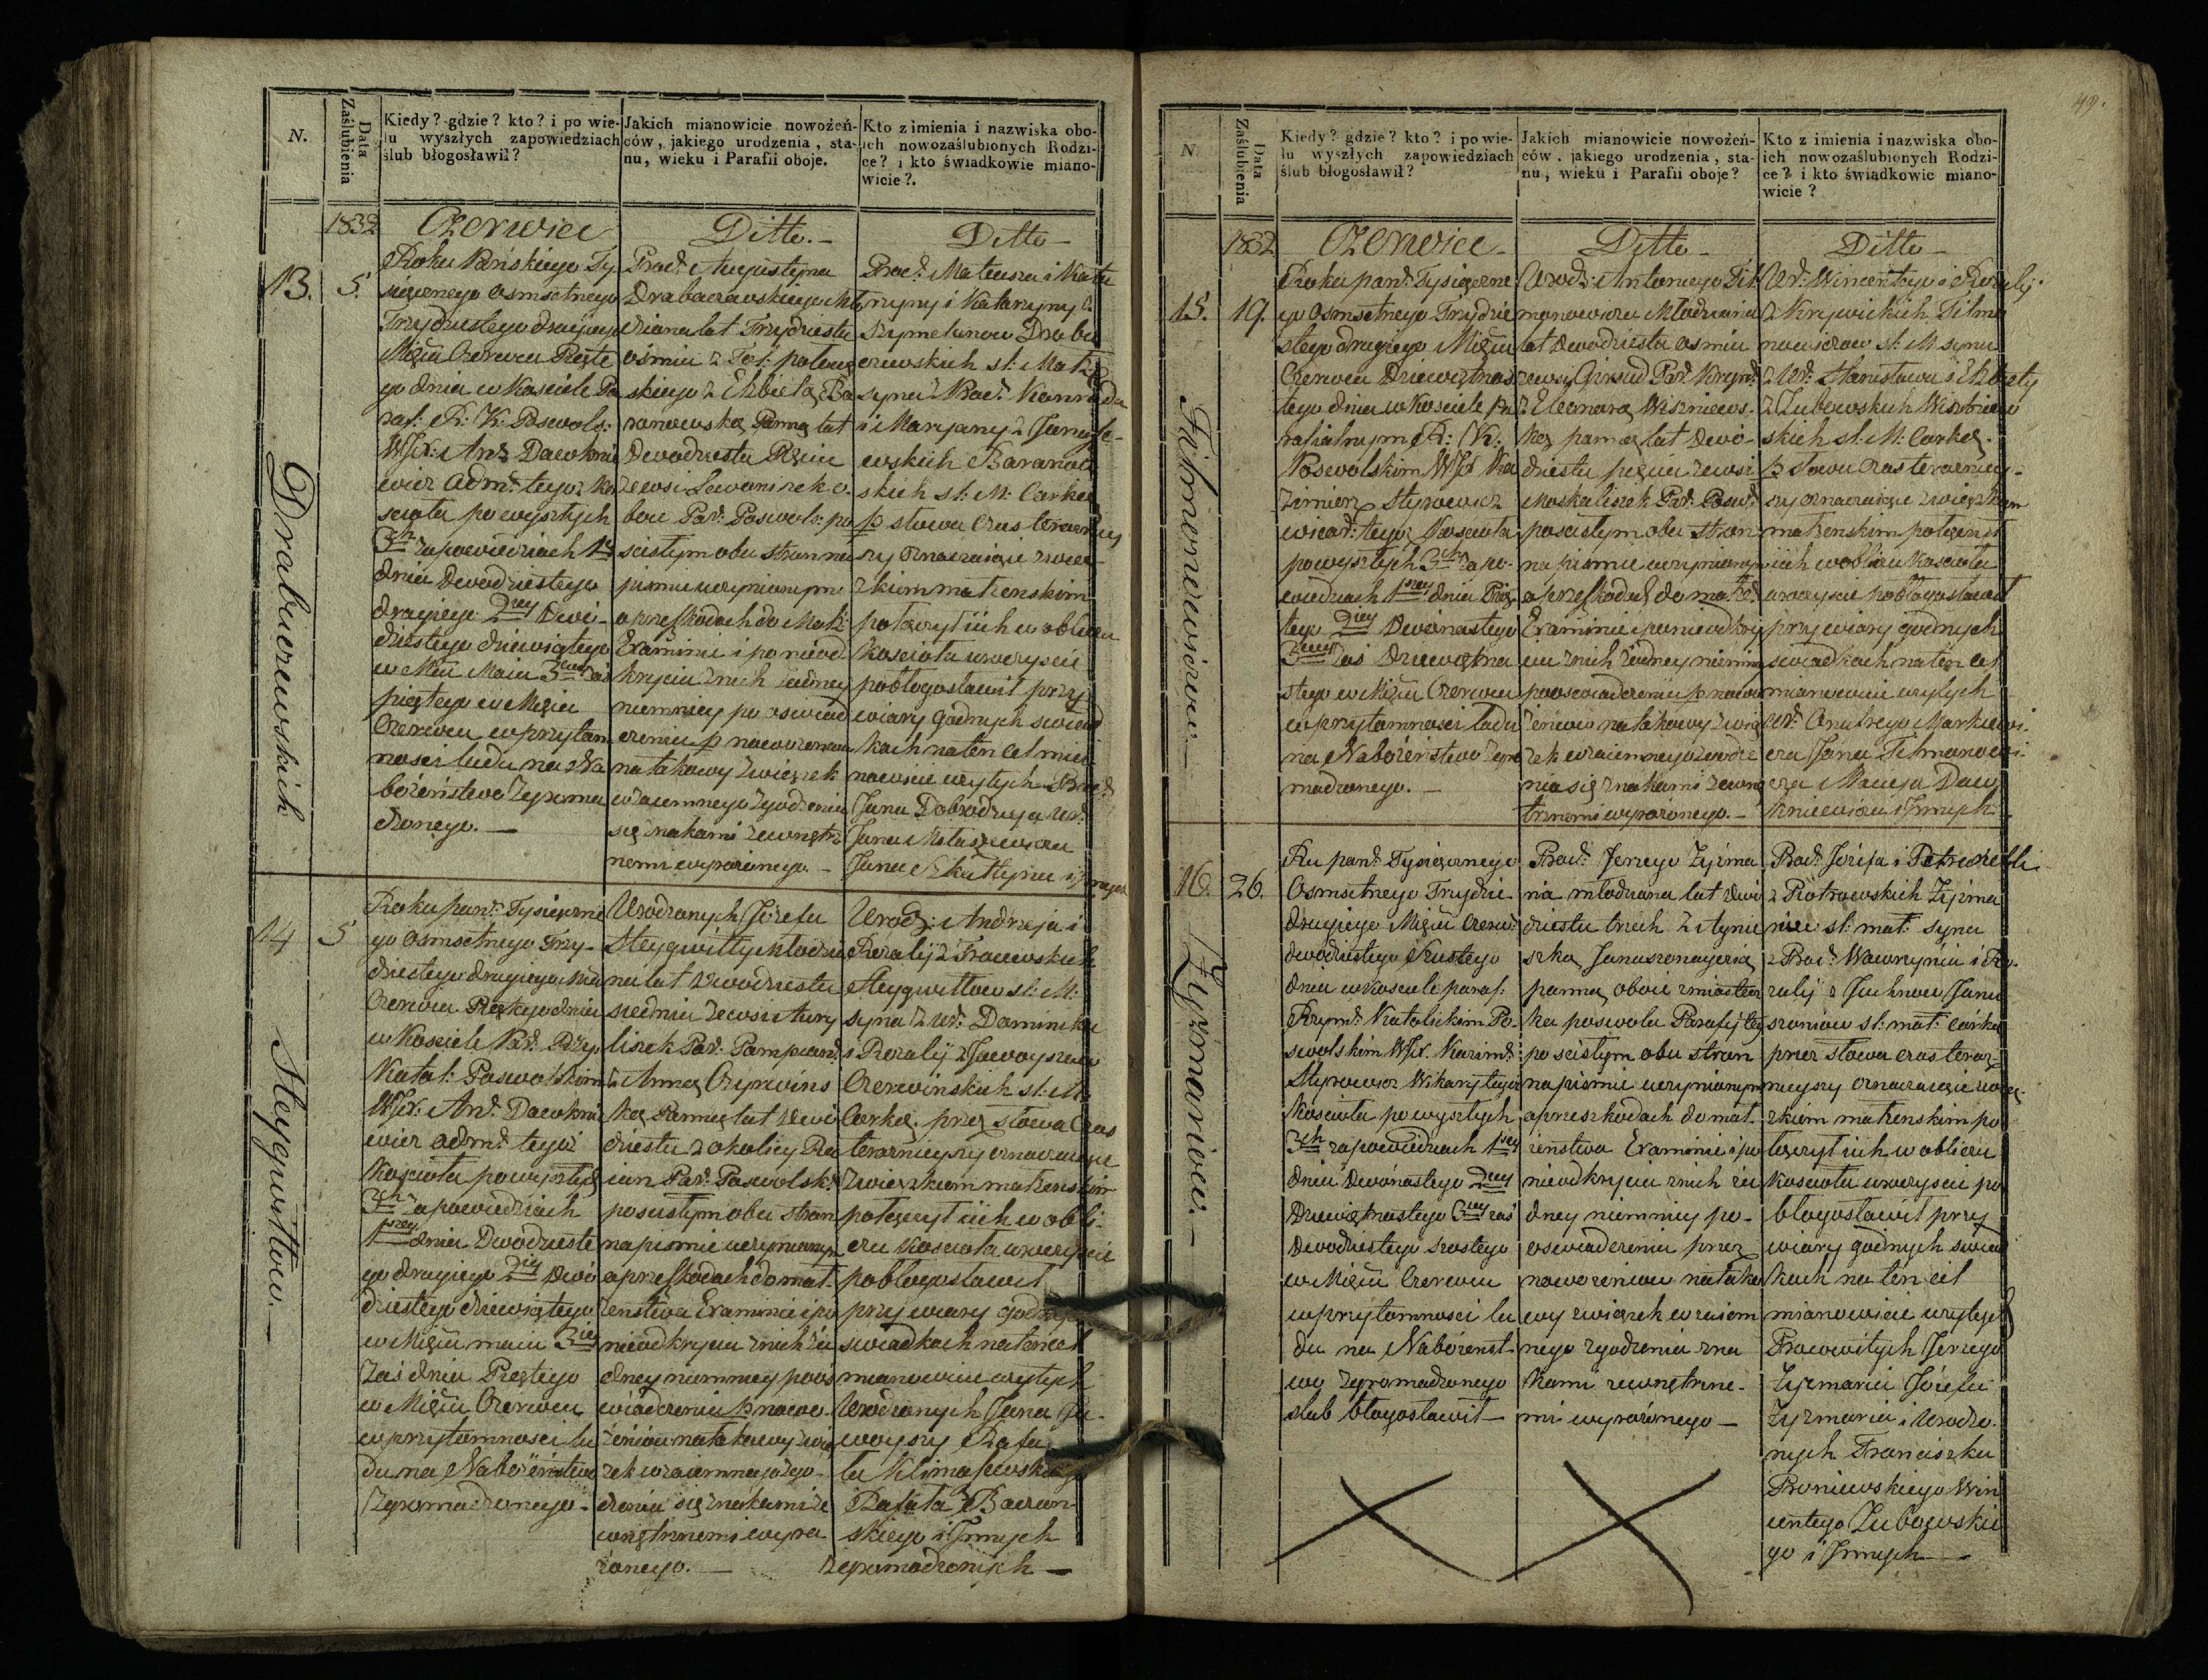 N.
Data
Zaślubienia
Kiedy? gdzie? kto? i po wie-
lu wyszłych zapowiedziach
ślub błogosławił?
Jakich mianowicie nowożeń-
ców, jakiego urodzenia, sta-
nu, wieku i Parafii oboje.
Kto z imienia i nazwiska obo-
ich nowozaślubionych Rodzi-
ce? i kto świadkowie miano-
wicie?.
1832
Czerwiec
Ditto. -
Ditto -
13.
5.
Drabaczewskich
Roku Pańskiego Ty
siącznego osmsetnego
Trzydziestego drugiego
Mscu Czerwcu Piąte
go dnia w Kościele Pa
raf: R: K: Poswols:
WJX: And: Dawkni
ewicz Adm: tegoż Ko
scioła po wyszłych
3ch zapowiedziach 1ey
dnia dwódziestego
drugiego 2giey dwó-
dziestego dziewiątego
w Mcu Maiu zaś
piątego w Miścu
Czerwcu w przytom
ności ludu na Na
bożeństwo zgroma
dzonego. -
Prac: Augustyna
Drabaczewskiego Mło
dziana lat Trzydziestu
ośmiu z Elżbietą Ba
ranowską Panną lat
Dwódziestu Pięciu
ze wsi Lewaniszek o-
boie Par: Poswols: po
scisłym obu stron na
pismie uczynionym
o przeszkodach do Małż:
Examinie i po nieod
kryciu z nich żadney
niemniey po oswiad
czeniu p nowożeńców
na takowy związek
wzaiemnego zgodzenia
się znakami zewnętrz
nemi wyrażonego. -
Prac: Mateusza i Kata
rzyny i Katarzyny z
Szymelunow Draba
czewskich sl: Małż:
syna z Prac: Konrada
i Maryany z
ewskich Baranow
skich sl: M: Corkę
p słowa czas teraźniey
szy oznaczaiące związ
kiem małżenskim
połączył ich w obliczu
Koscioła uroczyscie
pobłogosławił przy
wiary godnych świad
kach na ten cel mia
nowicie użytych Prac:
Jana Dobrodzieja Ur:
Jana Matuszewicza
Jana Skuttyna i innych
14
5
Steygwiłłow. -
Roku pań: Tysiączne
go osmsetnego Trzy-
dziestego drugiego Mca
Czerwca Piątego dnia
w Kościele Par: Rzy:
Katol: Poswolskim
WJX: And: Dawkni
ewicz adm: tegoż
Koscioła po wyszłych
3ch zapowiedziach
1szey dnia Dwódzieste
go drugiego 2giey dwó
dziestego dziewiątego
w Miścu maiu 3ciey
zaś dnia Piątego
w Miścu Czerwcu
w przytomności lu
du na Nabożeństwo
zgromadzonego. -
Urodzonych Józefa
Steygwiłły Młodzia
na lat dwódziestu
siedmiu ze wsi Aury
liszek Par: Pompian:
z Anną Czerwins
ką Panną lat dwó
dziestu z okolicy Ra
iun Par: Poswolsk:
po scisłym obu stron
na pismie uczynionym
o przeszkodach do mał-
żenstwa Examinie i po
nieodkryciu z nich ża
dney niemniey po os
wiadczeniu p nowo-
żeńców na takowy zwią
zek wzaiemnego zgo-
dzenia się znakami ze
wnętrznemi wyra
żonego. -
Urodz: Andrzeja i
Rozalij z Tracewskich
Steygwiłłow sl: M:
syna z Ur: Dominika
i Rozalij z Jawoyszow
Czerwińskich sl: M:
Corkę. przez słowa czas
teraźnieyszy oznaczaiące
związkiem małżeńskim
połączył ich w obli-
czu Koscioła uroczyscie
pobłogosławił
przy wiary godnych
swiadkach na ten cel
mianowicie użytych
Urodzonych Jana Ja-
woyszy Rafa
ła Klimaszewskiego
Rafała Baczun
skiego i Innych
zgromadzonych -
49.
N.
Data
Zaślubienia
Kiedy? gdzie? kto? i po wie-
lu wyszłych zapowiedziach
ślub błogosławił?
Jakich mianowicie nowożeń-
ców. jakiego urodzenia, sta-
nu, wieku i Parafii oboje?
Kto z imienia i nazwiska obo-
ich nowozaślubionych Rodzi-
ce? i kto świadkowie miano-
wicie?
1832
Czerwiec -
Ditto -
Ditto -
15.
19.
Tilmonowiczow. -
Roku pań: Tysiączne
go Osmsetnego Trzydzie
stego drugiego Miścu
Czerwcu Dziewiętnas
tego dnia w Kościele Pa
rafialnym R: K:
Poswolskim WJX Ka
zimierz Styrowicz
wicar: tegoż Koscioła
po wyszłych 3ch zapo-
wiedziach 1szey dnia Pią
tego 2giey Dwónastego
3ciey zaś Dziewiętna
stego w Miścu Czerwcu
w przytomności ludu
na Nabożeństwo zgro
madzonego. -
Urodz: Antoniego Til
manowicza Młodziana
lat dwódziestu osmiu
ze wsi Par: Krynč:
z Eleonorą Wiszniews-
ką panną lat dwó-
dziestu pięciu ze wsi
Moskaliszek Par: Posw:
po scisłym obu stron
na pismie uczynionym
o przeszkodach do małż:
Examinie i po nieodkry
ciu z nich żadney niemni
po oswiadczeniu p nowo
żeńców na takowy zwią
zek wzaiemnego zgodze
nia się znakami zewnę
trznemi wyrażonego. -
Ur: Wincentego i Rozalij
z Krywickich Tilma
nowiczow sl: M: syna
z Ur: Stanisława i Elżbiety
z Zubowskich Wiszniew
skich sl: M: Corkę.
p słowa czas teraźniey-
szy oznaczaiące związkiem
małżenskim połączył
ich w obliczu Koscioła
uroczyscie pobłogosławił
przy wiary godnych
swiadkach na ten cel
mianowicie użytych
Ur: Onufrego Markiewi
cza Jana Tilmanowi-
cza Macieja Daw
kniewicza i Innych
16.
26.
Zyzmaniow. -
Ru pań: Tysiącznego
Osmsetnego Trzydzie
drugiego Miścu Czerwc
dwódziestego szustego
dnia w Kościele paraf:
Rzyms: Katolickim Po-
swolskim WJX. Kazim:
Styrowicz Wikary tegoż
Koscioła po wyszłych
3ch zapowiedziach 1szey
dnia Dwónastego 2giey
Dziewiętnastego 3ciey zaś
Dwódziestego szostego
w Miścu Czerwcu
w przytomności lu
du na Nabożenst-
wo zgromadzonego
slub błogosławił -
Prac: Jerzego Zyzma
nia młodziana lat dwó
dziestu trzech z Agnie
szką Januszonaycią
panną oboie z miastecz
ka poswola Parafij tey
po scisłym obu stron
na pismie uczynionym
o przeszkodach do mał-
żeństwa Examinie i po
nieodkryciu z nich ża
dney niemniey po-
oswiadczeniu przez
nowożeńców na tako
wy związek wzaiem
nego zgodzenia zna
kami zewnętrzne-
mi wyrażonego -
Prac: Józefa i Petronelli
z Piotrowskich Zyzma
niow sl: mał: syna
z Prac: Wawrzynia i Ro-
zalij z Juchnow Janu
szoniow sl: mał: córką
przez słowa czas teraź-
nieyszy oznaczaiące związ-
kiem małżenskim po
łączył ich w obliczu
Koscioła uroczyscie po
błogosławił przy
wiary godnych swiad
kach na ten cel
mianowicie użytych
Pracowitych Jerzego
Zyzmania Józefa
Zyzmania i Urodzo-
nych Franciszka
Broniewskiego Win
centego Zubowskie
go i Innych -